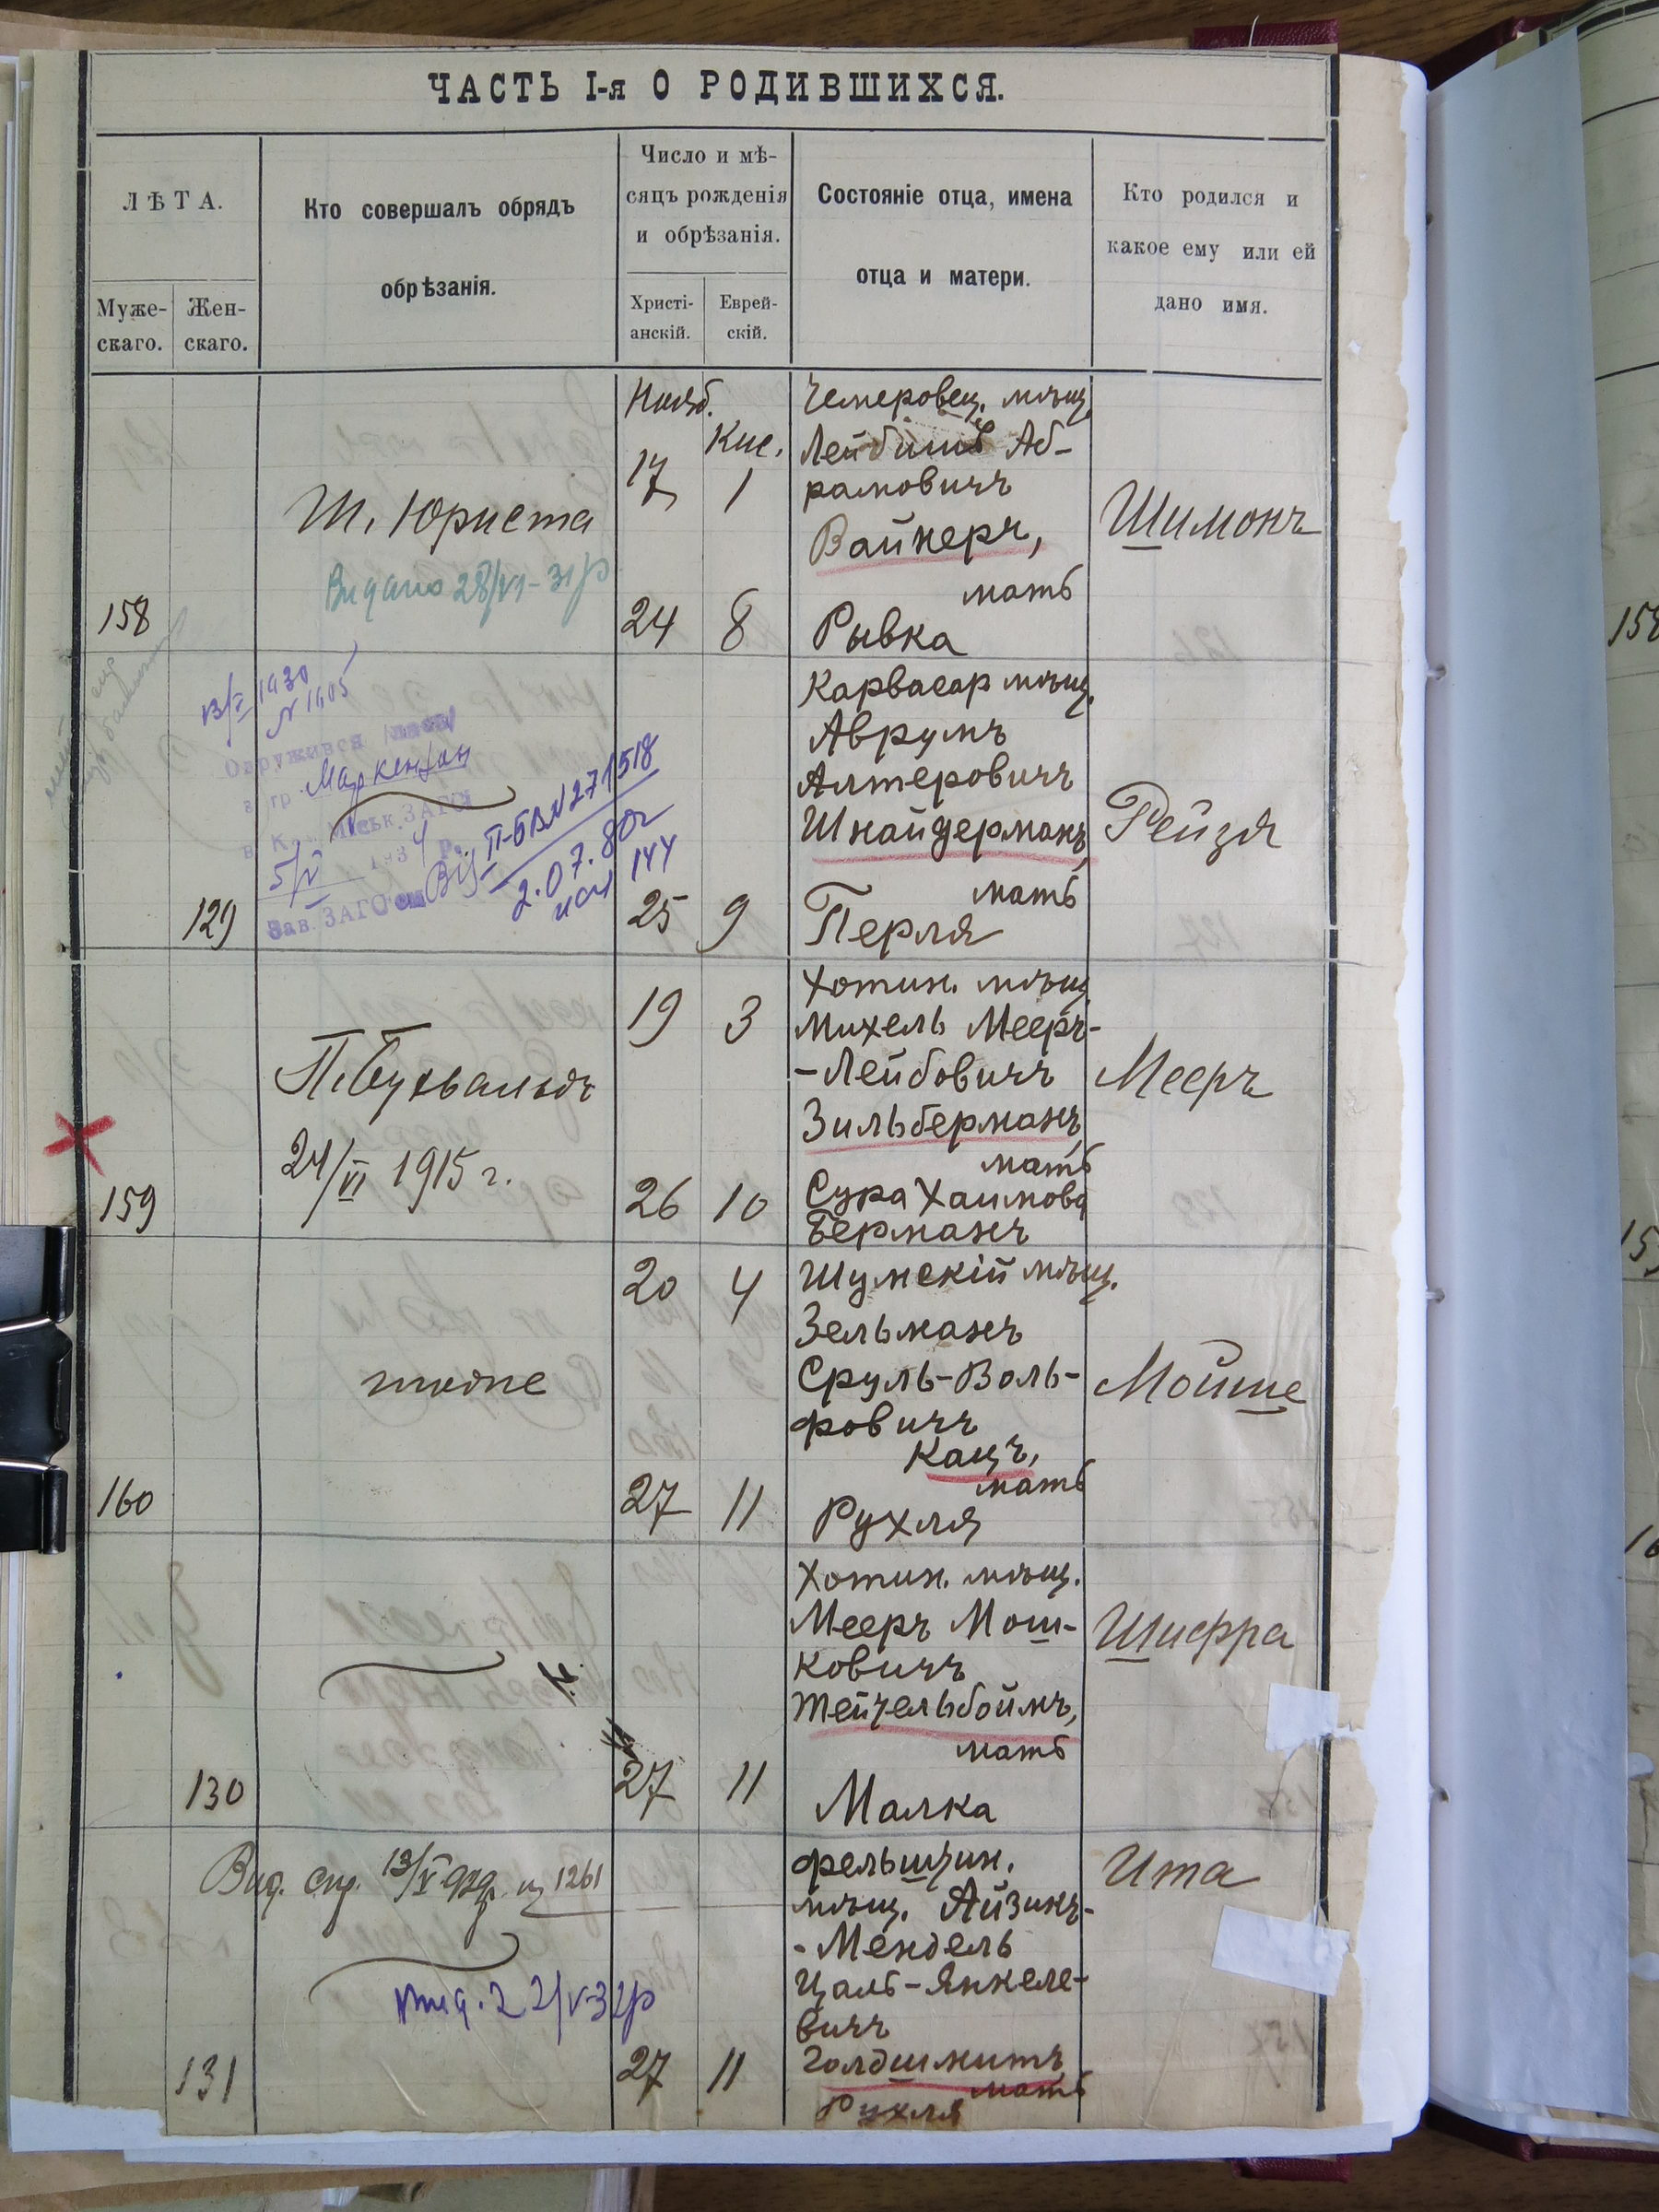 ЧАСТЬ I-я О РОДИВШИХСЯ.
ЛѢТА.
Муже-
скаго.
Жен-
скаго.
Кто совершалъ обрядъ
обрѣзанія.
Число и мѣ-
сяцъ рожденія
и обрѣзанія.
Христі-
анскій.
Еврей-
скій.
Состояніе отца, имена
отца и матери.
Кто родился и
какое ему или ей
дано имя.
158
Ш. Юриста
Видано 28/VI-31р
Нояб.
17
24
Кис.
1
8
Чемеровец. мѣщ.
Лейбишъ Аб-
рамовичъ
Вайнеръ,
мать
Рывка
Шимонъ
129
13/V 1930
N 1605
Одружився
гр. Маркензон
в К. Міськ. ЗАГСІ
5/V 1934 р.
Зав. ЗАГСом
II-БВ N 271518
2.07.80г
144
25
9
Карвасар мѣщ.
Аврумъ
Алтеровичъ
Шнайдерманъ,
мать
Перля
Рейзя
159
П. Бухвальдъ
24/VI 1915 г.
19
26
3
10
Хотин. мѣщ.
Михель Мееръ-
-Лейбовичъ
Зильберманъ,
мать
Сура Хаимова
Берманъ
Мееръ
160
тоже
20
27
4
11
Шумскій мѣщ.
Зельманъ
Сруль-Воль-
фовичъ
Кацъ,
мать
Рухля
Мойше
130
27
11
Хотин. мѣщ.
Мееръ Мош-
ковичъ
Тейчельбоймъ,
мать
Малка
Шифра
131
Вид. 13/V 1261
вид. 2 2/V-32р
27
11
Фельштин.
мѣщ. Айзикъ-
-Мендель
Цаль-Янкеле-
вичъ
Голдшмитъ
мать
Рухля
Ита
158